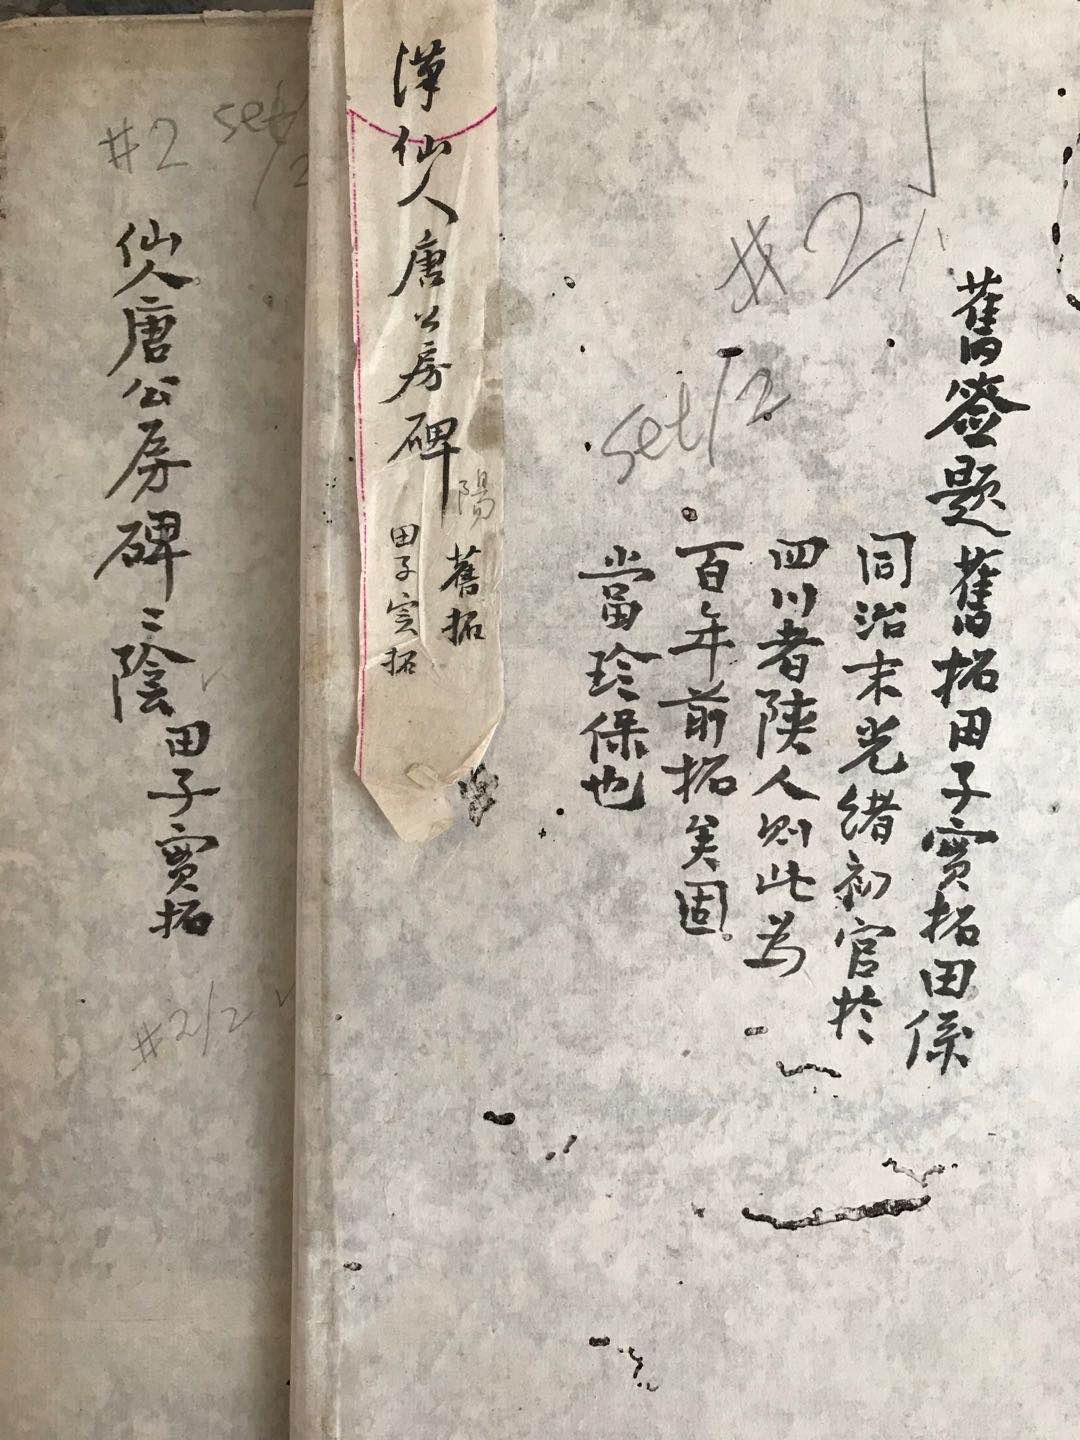 舊簽題舊拓田子實拓田係
同治末光緒初官於
四川者陕人则此為
百年前拓矣固
當珍保也
#2/1
set/2
漢仙人唐公房碑
陽
舊拓
田子実拓
#2 set/2
仙人唐公房碑之陰
田子實拓
#2/2